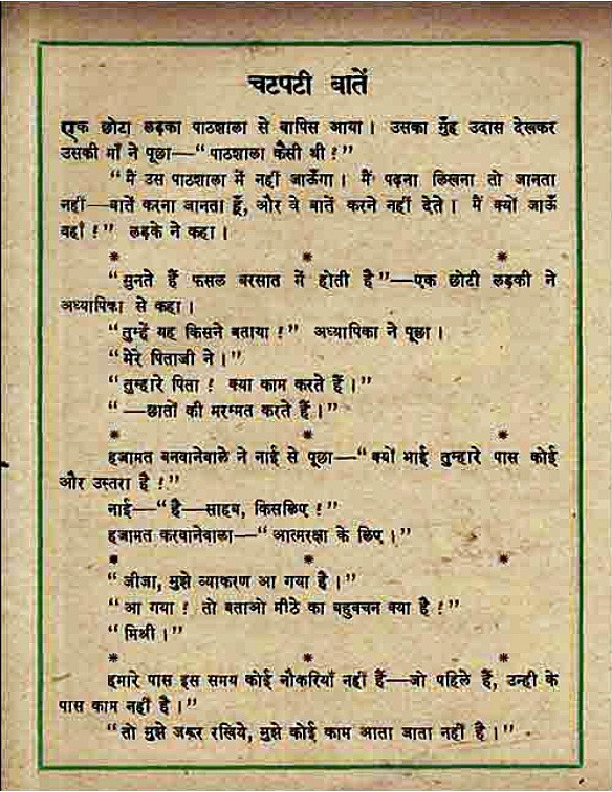 चटपटी बातें
एक छोटा लड़का पाठशाला से वापिस आया। उसका मुँह उदास देखकर
उसकी माँ ने पूछा—“पाठशाला कैसी थी?”
“मैं उस पाठशाला में नहीं जाऊँगा। मैं पढ़ना लिखना तो जानता
नहीं—बातें करना जानता हूँ, और वे बातें करने नहीं देते। मैं क्यों जाऊँ
वहाँ?” लड़के ने कहा।
* * *
“सुनते हैं फसल बरसात में होती है”—एक छोटी लड़की ने
अध्यापिका से कहा।
“तुम्हें यह किसने बताया?” अध्यापिका ने पूछा।
“मेरे पिताजी ने।”
“तुम्हारे पिता? क्या काम करते हैं।”
“—छातों की मरम्मत करते हैं।”
* * *
हजामत बनवानेवाले ने नाई से पूछा—“क्यों भाई तुम्हारे पास कोई
और उस्तरा है?”
नाई—“है—साहब, किसलिए?”
हजामत करवानेवाला—“आत्मरक्षा के लिए।”
* * *
“जीजा, मुझे व्याकरण आ गया है।”
“आ गया? तो बताओ मीठे का बहुवचन क्या है?”
“मिश्री।”
* * *
हमारे पास इस समय कोई नौकरियाँ नहीं हैं—जो पहिले हैं, उन्ही के
पास काम नहीं है।”
“तो मुझे जरूर रखिये, मुझे कोई काम आता जाता नहीं है।”